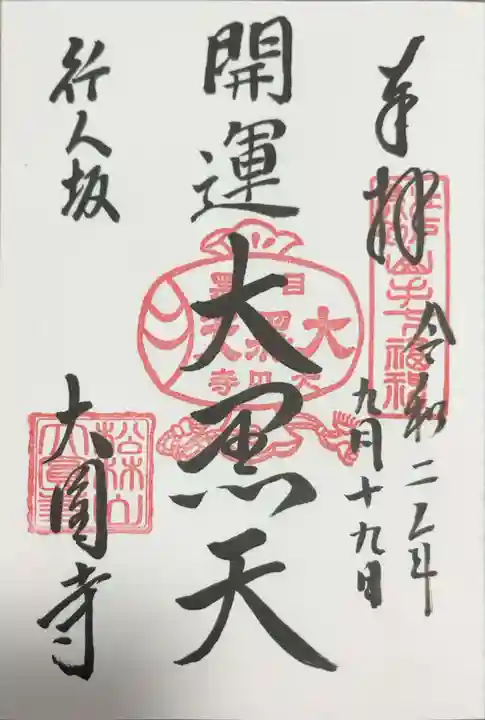 奉拝
令和二年
九月十九日
開運
大黒天
目黒
大黒天
大円寺
行人坂
大圓寺